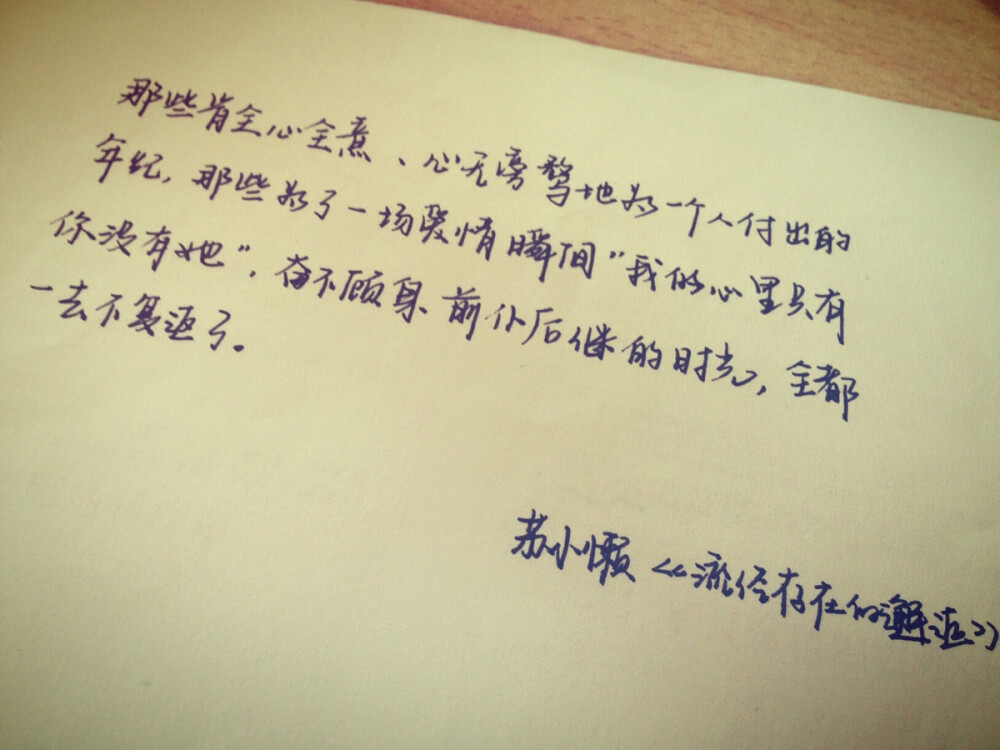 那些肯全心全意、心无旁骛地为一个人付出的
年纪，那些为了一场爱情瞬间“我的心里只有
你没有她”，奋不顾身、前仆后继的时光，全都
一去不复返了。
苏小懒《流经存在的邂逅》